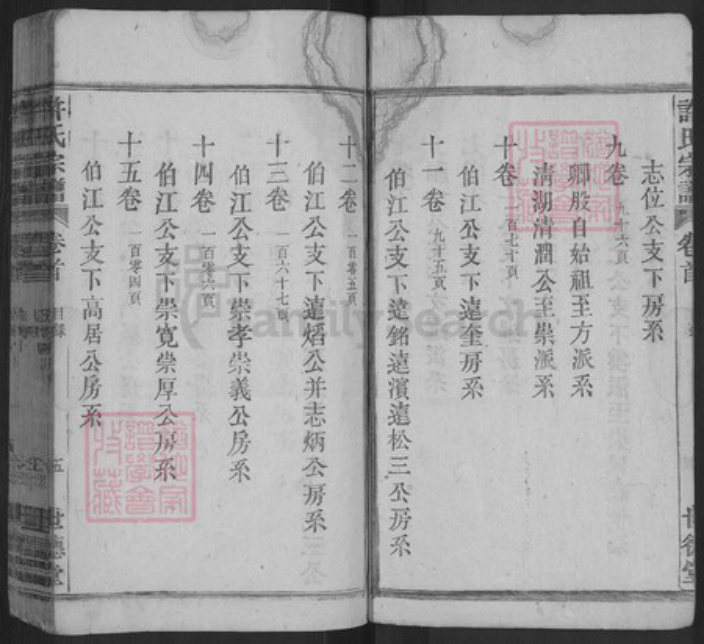 許氏宗譜
卷首
世德堂
志位公支下房系
九卷 九十六頁
卿般自始祖至方派系
清湖清潤公至崇派系
十卷 一百七十頁
伯江公支下遠奎房系
十一卷 九十五頁
伯江公支下遠銘遠濱遠松三公房系
十二卷 一百零五頁
伯江公支下遠熖公并志炳公房系
十三卷 一百六十七頁
伯江公支下崇孝崇義公房系
十四卷 一百零六頁
伯江公支下崇寬崇厚公房系
十五卷 一百零四頁
伯江公支下高居公房系
許氏宗譜
卷首
目錄
五
世德堂
FamilySearch